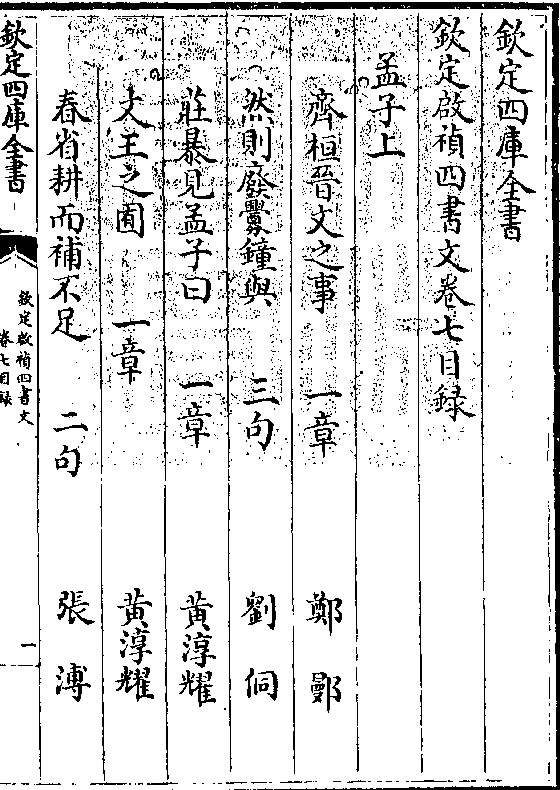 欽定四庫全書
欽定啟禎四書文卷七目録
孟子上
齊桓晉文之事 一章 鄭鄤
然則廢釁鐘與 三句 劉侗
莊暴見孟子曰 一章 黃淳耀
文王之囿 一章 黃淳耀
春省耕而補不足 二句 張溥
欽定四庫全書
欽定啟禎四書文
卷七目録
一